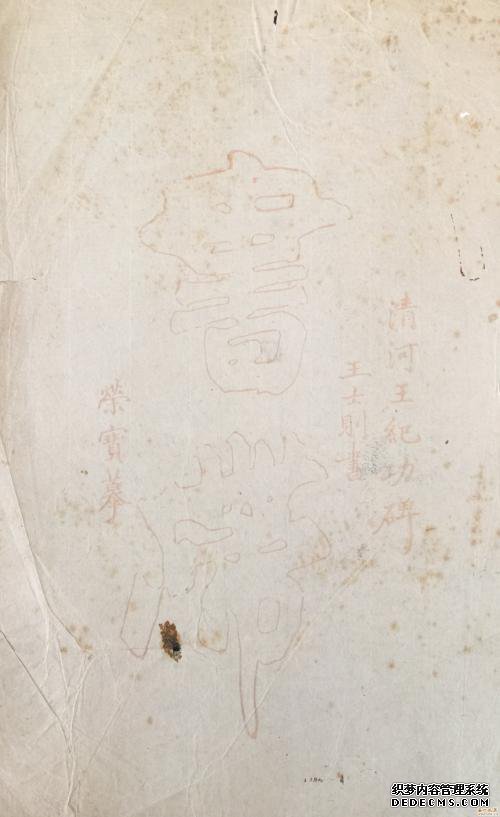 清河王紀功碑
王士則書
書帶
榮寶摹
织梦内容管理系统
DEDECMS.COM